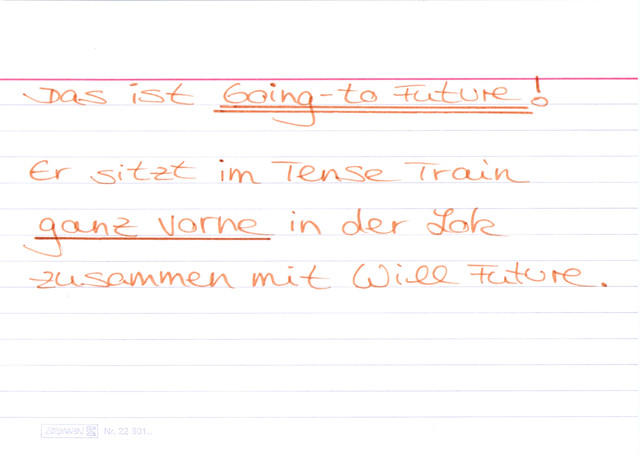 Das ist Going-to Future!
Er sitzt im Tense Train
ganz vorne in der Lok
zusammen mit Will Future.
Nr. 22 301..